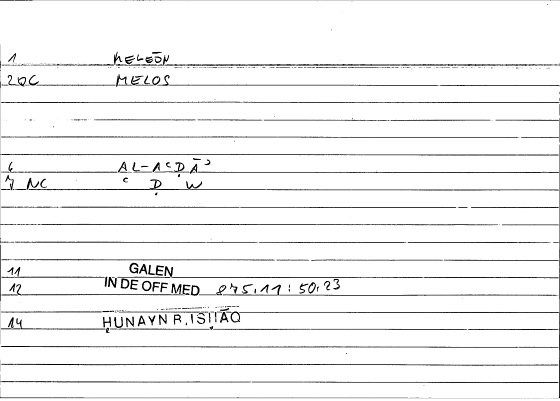 1 MELEŌN
2QC MELOS
6 AL-AʿḌĀʾ
7 NC ʿ Ḍ W
11 GALEN
12 IN DE OFF MED 875,11 : 50,23
14 ḤUNAYN R, ISḤĀQ